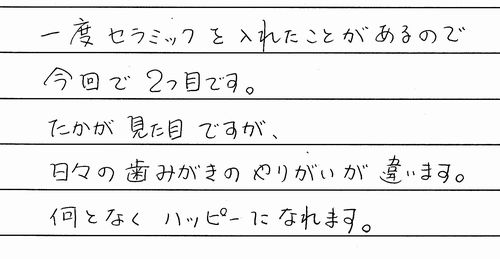 一度セラミックを入れたことがあるので
今回で2つ目です。
たかが見た目ですが、
日々の歯みがきのやりがいが違います。
何となくハッピーになれます。